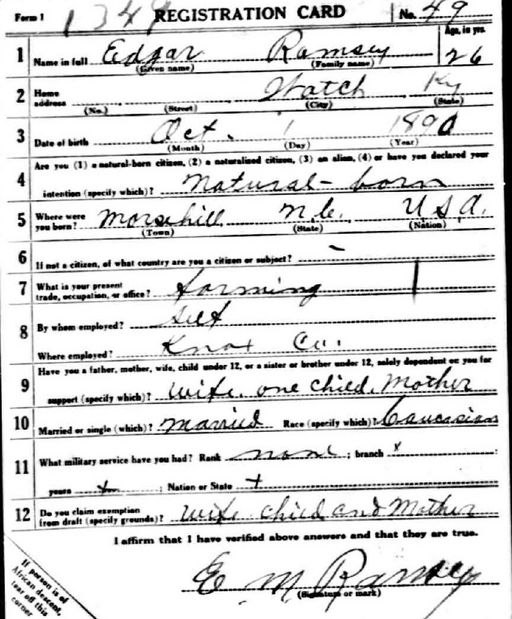 Form 1 1349 REGISTRATION CARD No. 49
Age, in yrs.
1 Name in full Edgar Ramsey 26
(Given name) (Family name)
2 Home address Watch Ky
(No.) (Street) (City) (State)
3 Date of birth Oct. 1 1890
(Month) (Day) (Year)
Are you (1) a natural-born citizen, (2) a naturalized citizen, (3) an alien, (4) or have you declared your
4 intention (specify which)? Natural-born
5 Where were you born? Morsehill N.C. U.S.A.
(Town) (State) (Nation)
6 If not a citizen, of what country are you a citizen or subject? -
7 What is your present trade, occupation, or office? farming
8 By whom employed? Self
Where employed? Knox Co.
Have you a father, mother, wife, child under 12, or a sister or brother under 12, solely dependent on you for
9 support (specify which)? Wife, one child, Mother
10 Married or single (which)? Married Race (specify which)? Caucasian
11 What military service have you had? Rank none ; branch x ;
years ; Nation or State
12 Do you claim exemption from draft (specify grounds)? Wife child and Mother
I affirm that I have verified above answers and that they are true.
E M Ramsey
(Signature or mark)
If person is of
African descent,
tear off this
corner